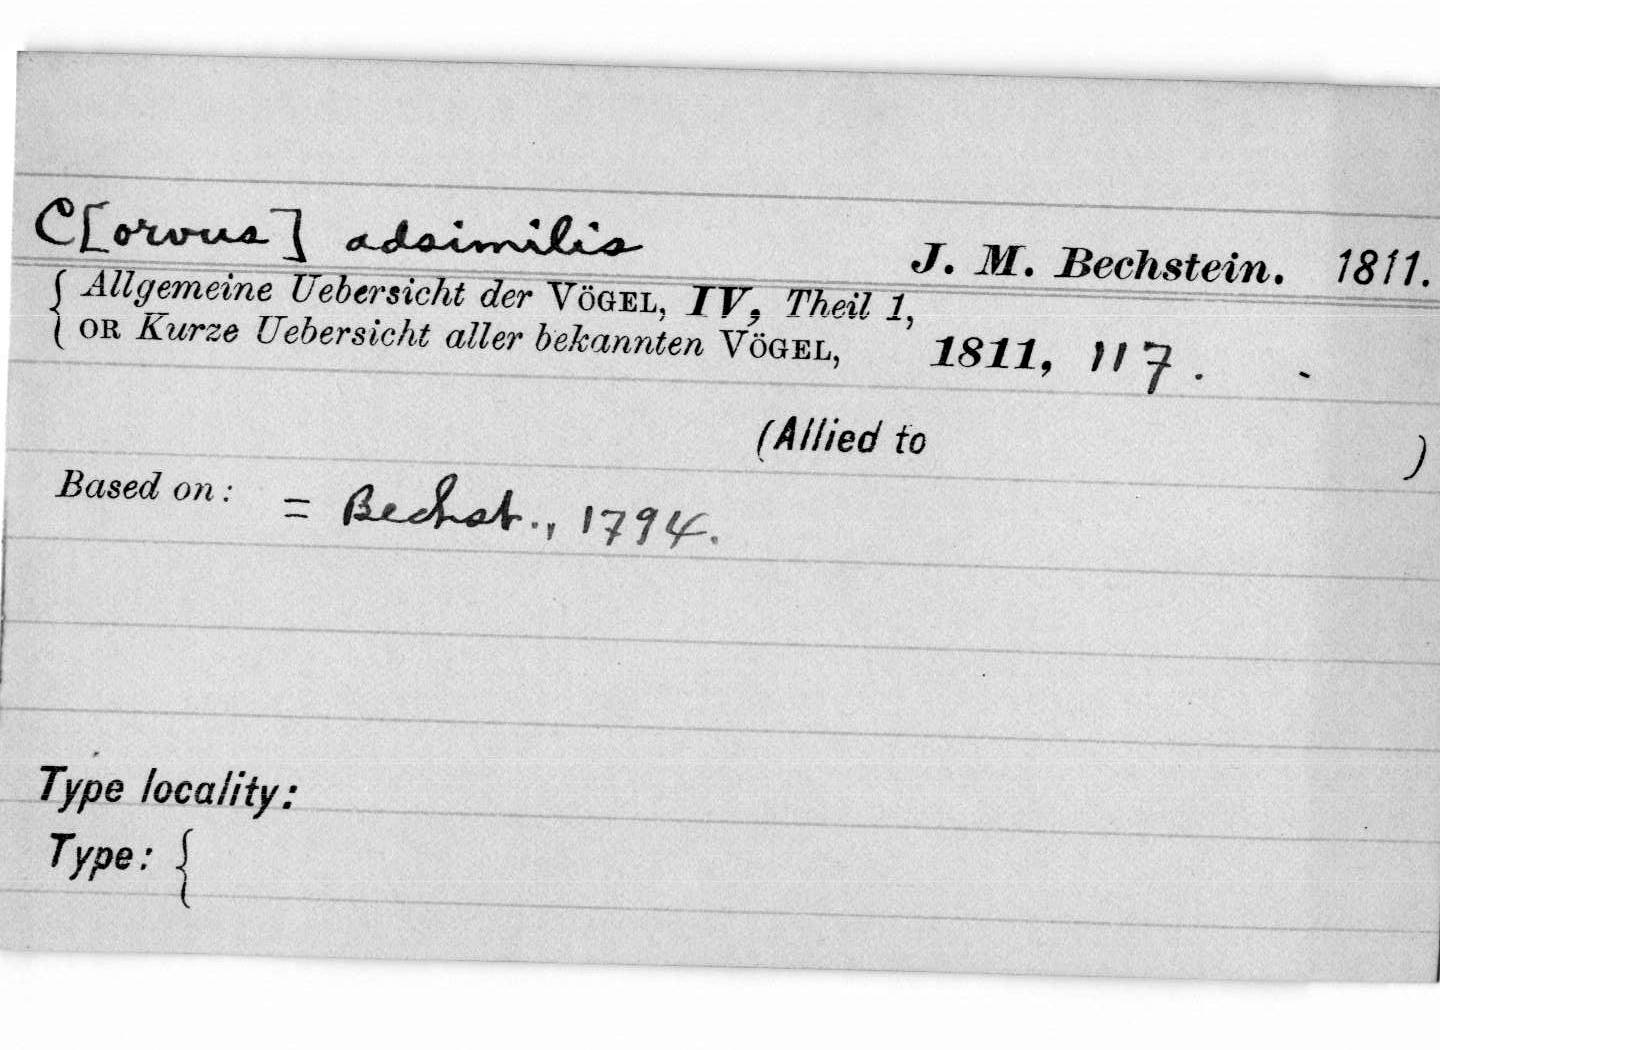 C[orvus] adsimilis J. M. Bechstein. 1811.
{ Allgemeine Uebersicht der VÖGEL, IV, Theil 1,
{ OR Kurze Uebersicht aller bekannten VÖGEL, 1811, 117.
(Allied to )
Based on: = Bechst., 1794.
Type locality:
Type: {